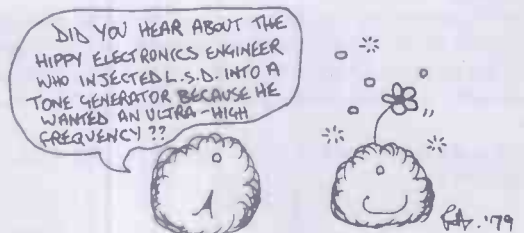 DID YOU HEAR ABOUT THE
HIPPY ELECTRONICS ENGINEER
WHO INJECTED L.S.D. INTO A
TONE GENERATOR BECAUSE HE
WANTED AN ULTRA-HIGH
FREQUENCY??
'79